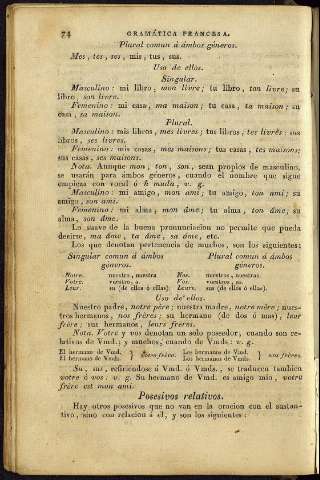 74 GRAMÁTICA FRANCESA.
Plural comun á ámbos géneros.
Mes, tes, ses, mis, tus, sus.
Uso de ellos.
Singular.
Masculino: mi libro, mon livre; tu libro, ton livre; su
libro, son livre.
Femenino: mi casa, ma maison; tu casa, ta maison; su
casa, sa maison.
Plural.
Masculino: mis libros, mes livres; tus libros, tes livres; sus
libros, ses livres.
Femenino: mis casas, mes maisons; tus casas, tes maisons;
sus casas, ses maisons.
Nota. Aunque mon, ton, son, sean propios de masculino,
se usarán para ámbos géneros, cuando el nombre que sigue
empieza con vocal ó h muda, v. g.
Masculino: mi amigo, mon ami; tu amigo, ton ami; su
amigo, son ami.
Femenino: mi alma, mon âme; tu alma, ton âme; su
alma, son âme.
Lo suave de la buena pronunciacion no permite que pueda
decirse, ma âme, ta âme, sa âme, etc.
Los que denotan pertenencia de muchos, son los siguientes:
Singular comun á ámbos géneros. Plural comun á ámbos géneros.
Notre. nuestro, nuestra. Nos. nuestros, nuestras.
Votre. vuestro, a. Vos. vuestros, as.
Leur. su (de ellos ó ellas). Leurs. sus (de ellos ó ellas).
Uso de ellos.
Nuestro padre, notre père; nuestra madre, notre mère; nues-
tros hermanos, nos frères; su hermano (de dos ó mas), leur
frère; sus hermanos, leurs frères.
Nota. Votre y vos denotan un solo poseedor, cuando son re-
lativas de Vmd.; y muchos, cuando de Vmds: v. g.
El hermano de Vmd. } votre frère. Los hermanos de Vmd. } vos frères.
El hermano de Vmds. Los hermanos de Vmds.
Su, sus, refiriéndose á Vmd. ó Vmds., se traducen tambien
votre ó vos. v. g. Su hermano de Vmd. es amigo mio, votre
frère est mon ami.
Posesivos relativos.
Hay otros posesivos que no van en la oracion con el sustan-
tivo, sino con relacion á él, y son los siguientes: